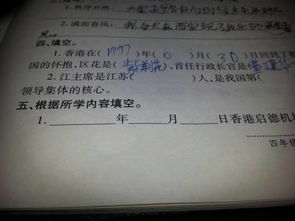 2. 满面春风：我
四、填空。
1. 香港在(1997)年(6)月(30)日回到了
国的怀抱,区花是(紫荆花),首任行政长官是(董建华
2. 江主席是江苏(　　　)人,是我国第(
领导集体的核心。
五、根据所学内容填空。
1. ______年______月______日香港启德机
四年级